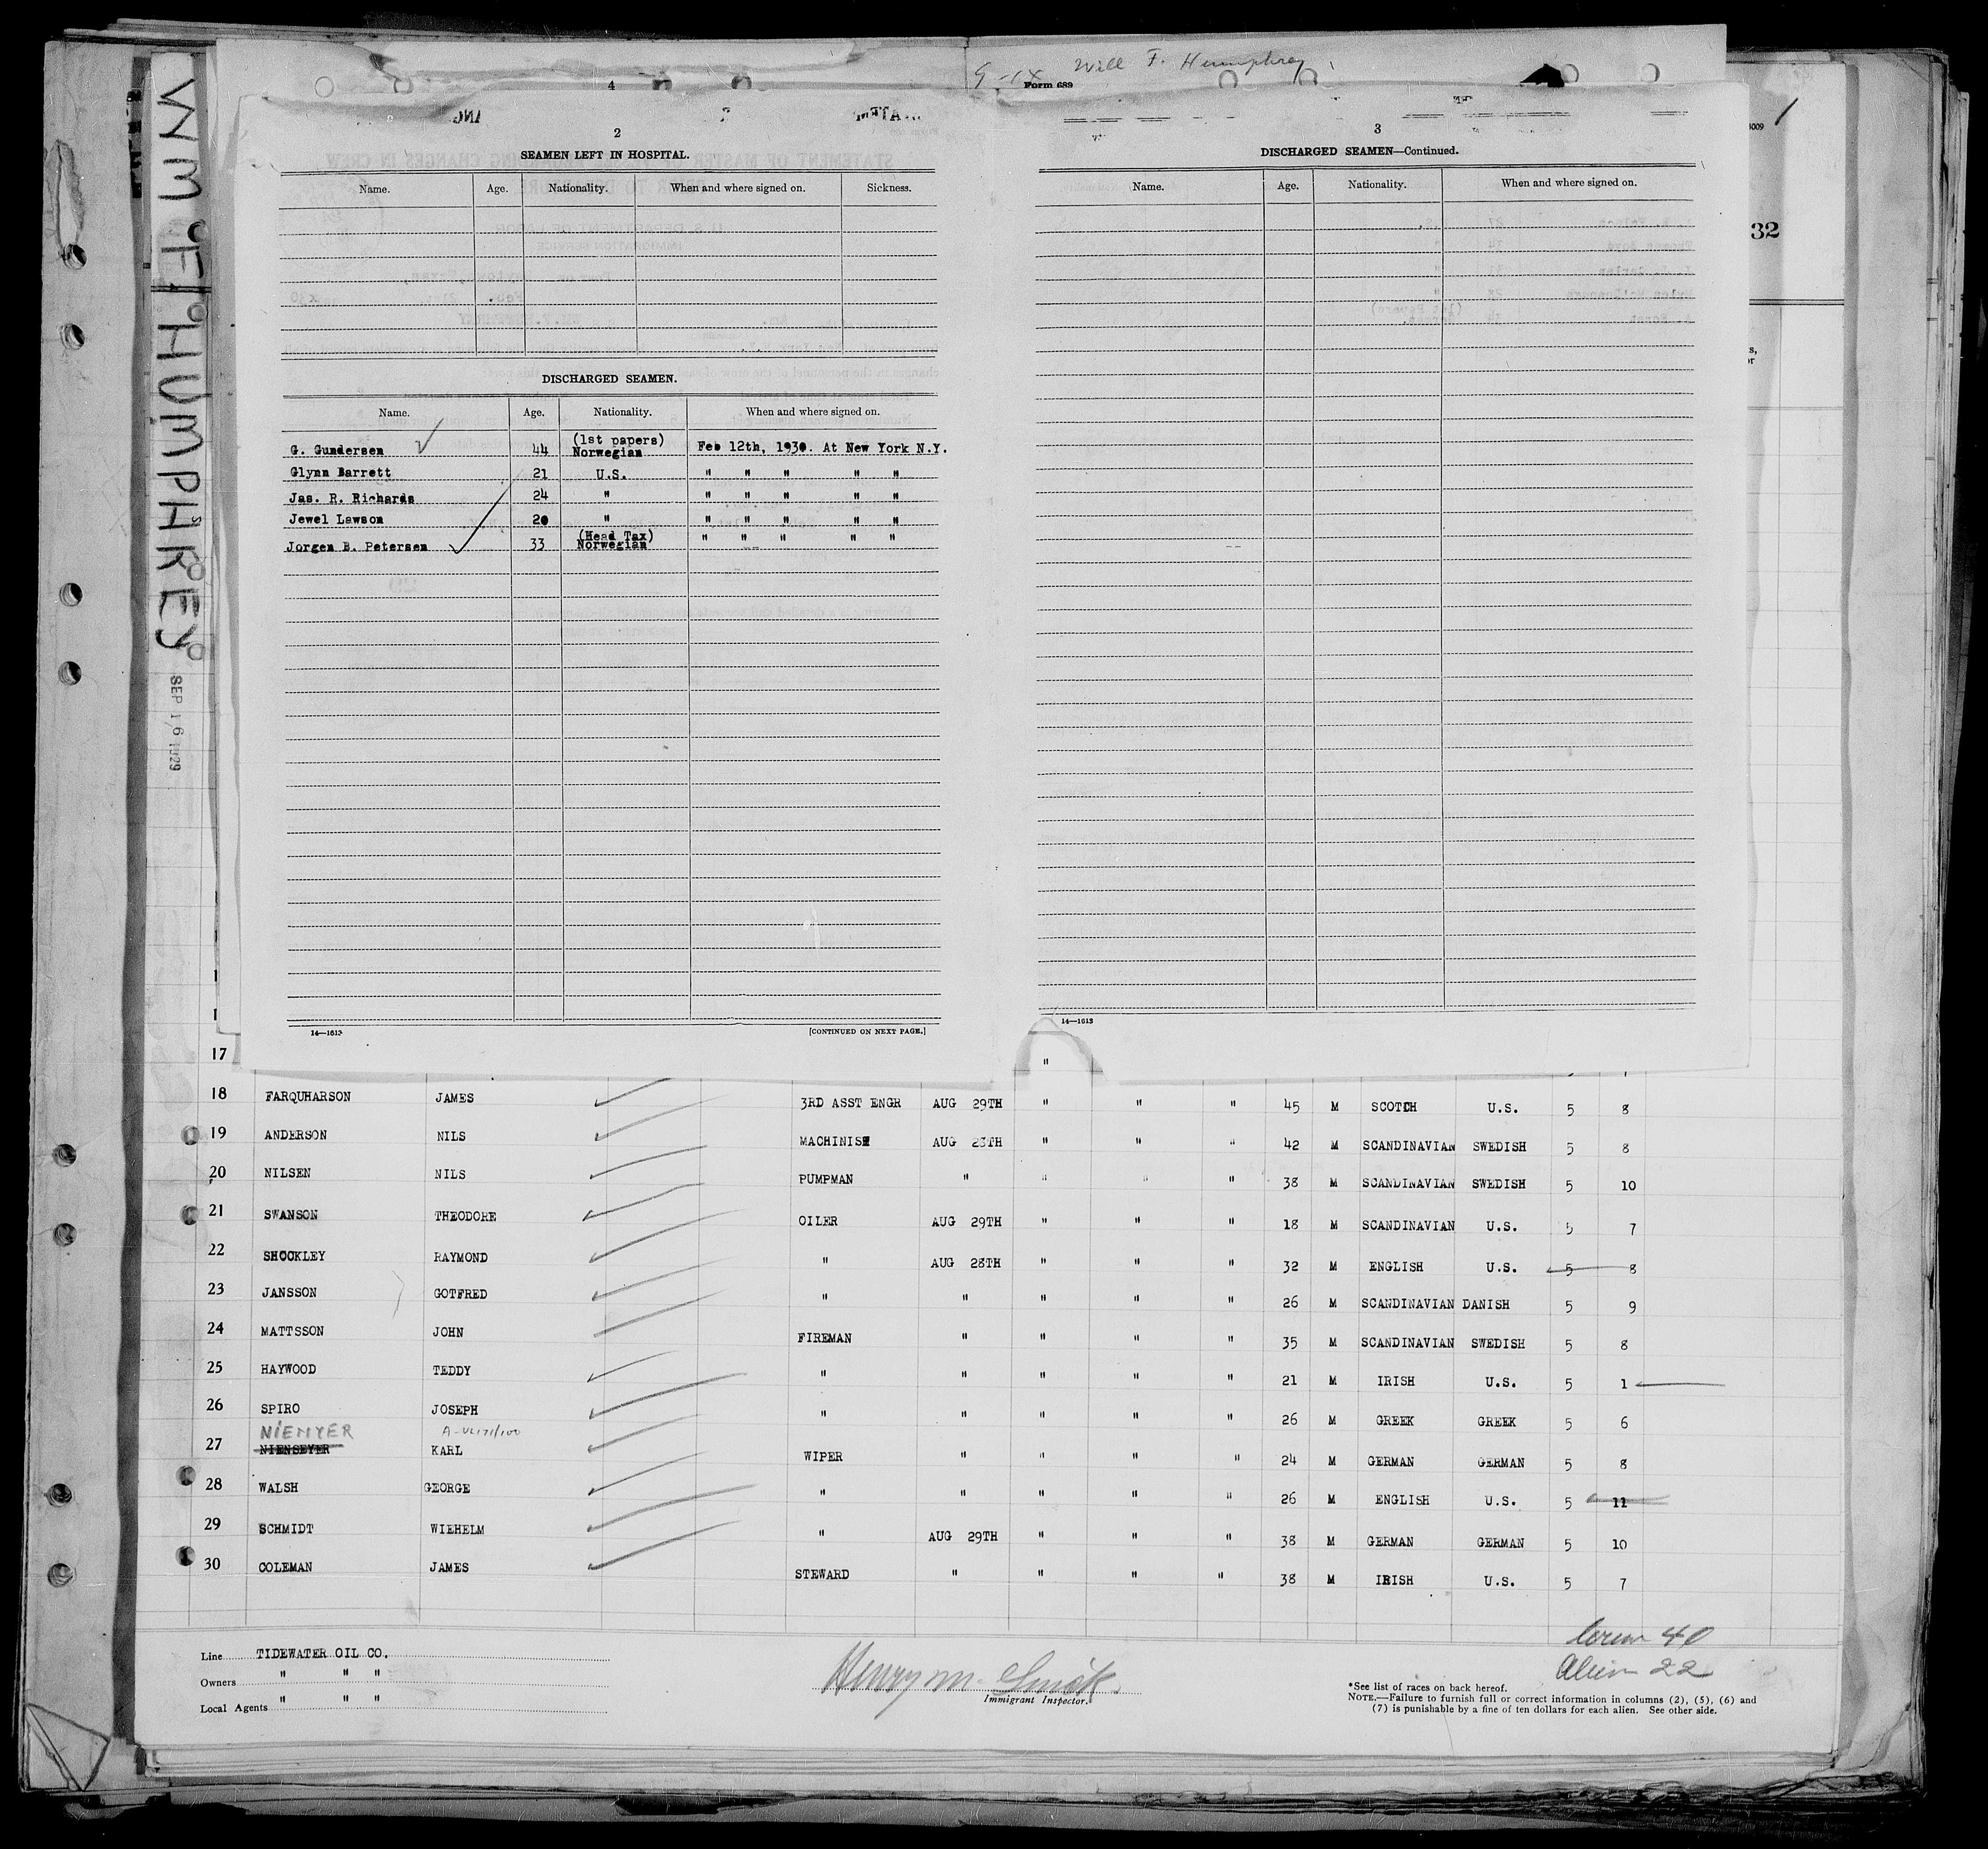 Will F. Humphrey
4
Form 689
WM F. HUMPHREY
SEP 16 1929
2
SEAMEN LEFT IN HOSPITAL.
Name. Age. Nationality. When and where signed on. Sickness.
DISCHARGED SEAMEN.
Name. Age. Nationality. When and where signed on.
G. Gundersen 44 (1st papers) Norwegian Feb 12th, 1930. At New York N.Y.
Glynn Barrett 21 U.S. " " " " "
Jas. R. Richards 24 " " " " " "
Jewel Lawson 20 " " " " " "
Jorgen B. Petersen 33 (Head Tax) Norwegian " " " " "
14—1613
[CONTINUED ON NEXT PAGE.]
3
DISCHARGED SEAMEN—Continued.
Name. Age. Nationality. When and where signed on.
14—1613
32
17 "
18 FARQUHARSON JAMES 3RD ASST ENGR AUG 29TH " " " 45 M SCOTCH U.S. 5 8
19 ANDERSON NILS MACHINIST AUG 28TH " " " 42 M SCANDINAVIAN SWEDISH 5 8
20 NILSEN NILS PUMPMAN " " " " 38 M SCANDINAVIAN SWEDISH 5 10
21 SWANSON THEODORE OILER AUG 29TH " " " 18 M SCANDINAVIAN U.S. 5 7
22 SHOCKLEY RAYMOND " AUG 28TH " " " 32 M ENGLISH U.S. 5 8
23 JANSSON GOTFRED " " " " " 26 M SCANDINAVIAN DANISH 5 9
24 MATTSSON JOHN FIREMAN " " " " 35 M SCANDINAVIAN SWEDISH 5 8
25 HAYWOOD TEDDY " " " " " 21 M IRISH U.S. 5 1
26 SPIRO JOSEPH " " " " " 26 M GREEK GREEK 5 6
NIEMYER
27 NIENSEYER KARL WIPER " " " " 24 M GERMAN GERMAN 5 8
28 WALSH GEORGE " " " " " 26 M ENGLISH U.S. 5 11
29 SCHMIDT WIEHELM " AUG 29TH " " " 38 M GERMAN GERMAN 5 10
30 COLEMAN JAMES STEWARD " " " " 38 M IRISH U.S. 5 7
Line TIDEWATER OIL CO.
Owners " " "
Local Agents " " "
Henry M. Smick
Immigrant Inspector.
Crew 40
Alien 22
*See list of races on back hereof.
NOTE.—Failure to furnish full or correct information in columns (2), (5), (6) and
(7) is punishable by a fine of ten dollars for each alien. See other side.